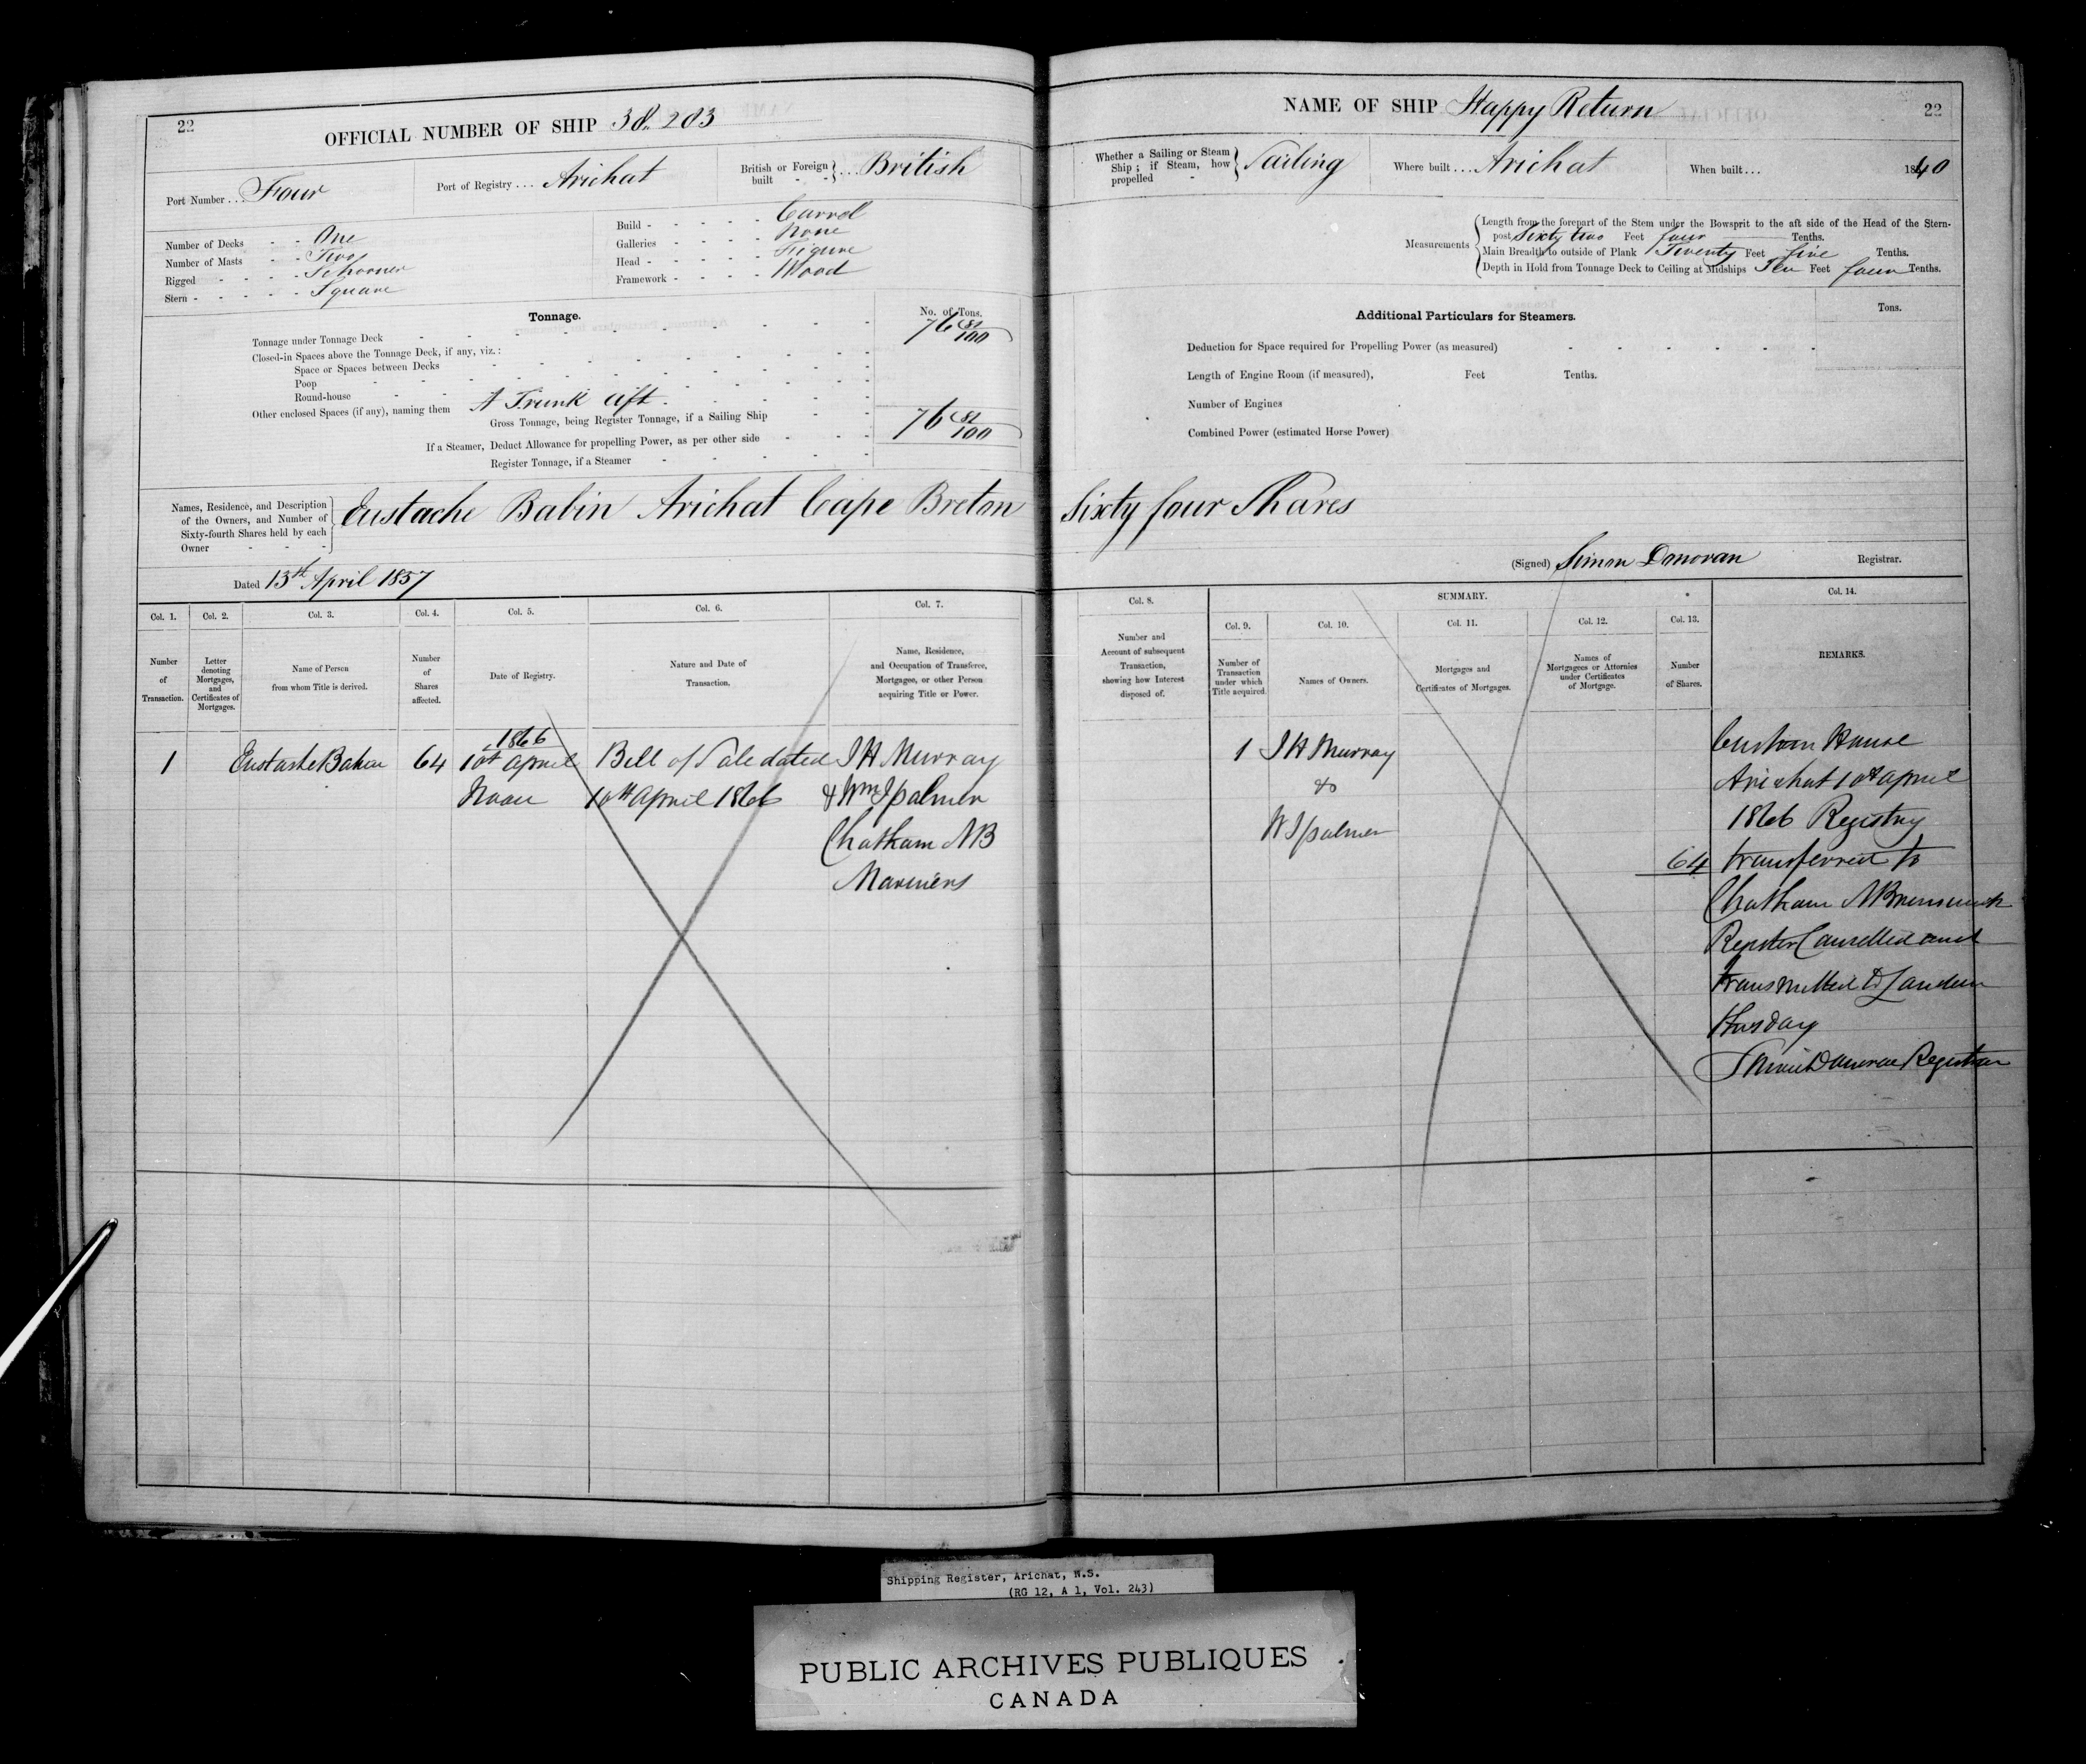 22
OFFICIAL NUMBER OF SHIP 38.203
Port Number . . . Four
Port of Registry . . . Arichat
British or Foreign built - - } . . . British
Number of Decks - - One
Number of Masts - - Two
Rigged - - - - Schooner
Stern - - - - - Square
Build - - - - - Carvel
Galleries - - - - None
Head - - - - - Figure
Framework - - - - Wood
Tonnage.
No. of Tons.
Tonnage under Tonnage Deck 76 81/100
Closed-in Spaces above the Tonnage Deck, if any, viz.:
Space or Spaces between Decks
Poop
Round-house
Other enclosed Spaces (if any), naming them A Trunk aft
Gross Tonnage, being Register Tonnage, if a Sailing Ship 76 81/100
If a Steamer, Deduct Allowance for propelling Power, as per other side
Register Tonnage, if a Steamer
Names, Residence, and Description
of the Owners, and Number of
Sixty-fourth Shares held by each
Owner
Eustache Babin Arichat Cape Breton
Dated 13th April 1857
Col. 1.
Number
of
Transaction.
Col. 2.
Letter
denoting
Mortgages,
and
Certificates of
Mortgages.
Col. 3.
Name of Person
from whom Title is derived.
Col. 4.
Number
of
Shares
affected.
Col. 5.
Date of Registry.
Col. 6.
Nature and Date of
Transaction.
Col. 7.
Name, Residence,
and Occupation of Transferee,
Mortgagee, or other Person
acquiring Title or Power.
1
Eustache Babin
64
1866
10th April
Noon
Bill of Sale dated
10th April 1866
J H Murray
& Wm J palmer
Chatham NB
Mariners
NAME OF SHIP Happy Return
22
Whether a Sailing or Steam
Ship; if Steam, how
propelled - } Sailing
Where built . . . Arichat
When built . . . 1840
Measurements
Length from the forepart of the Stem under the Bowsprit to the aft side of the Head of the Stern-
post Sixty two Feet four Tenths.
Main Breadth to outside of Plank Twenty Feet five Tenths.
Depth in Hold from Tonnage Deck to Ceiling at Midships Ten Feet four Tenths.
Additional Particulars for Steamers.
Tons.
Deduction for Space required for Propelling Power (as measured)
Length of Engine Room (if measured), Feet Tenths.
Number of Engines
Combined Power (estimated Horse Power)
Sixty four Shares
(Signed) Simon Donovan Registrar.
Col. 8.
Number and
Account of subsequent
Transaction,
showing how Interest
disposed of.
SUMMARY.
Col. 9.
Number of
Transaction
under which
Title acquired.
Col. 10.
Names of Owners.
Col. 11.
Mortgages and
Certificates of Mortgages.
Col. 12.
Names of
Mortgagees or Attornies
under Certificates
of Mortgage.
Col. 13.
Number
of Shares.
Col. 14.
REMARKS.
1
J H Murray
&
W J palmer
64
Custom House
Arichat 10th April
1866 Registry
transferred to
Chatham N Brunswick
Register Cancelled and
transmitted to London
this day
Simon Donovan Registrar
Shipping Register, Arichat, N.S.
(RG 12, A 1, Vol. 243)
PUBLIC ARCHIVES PUBLIQUES
CANADA